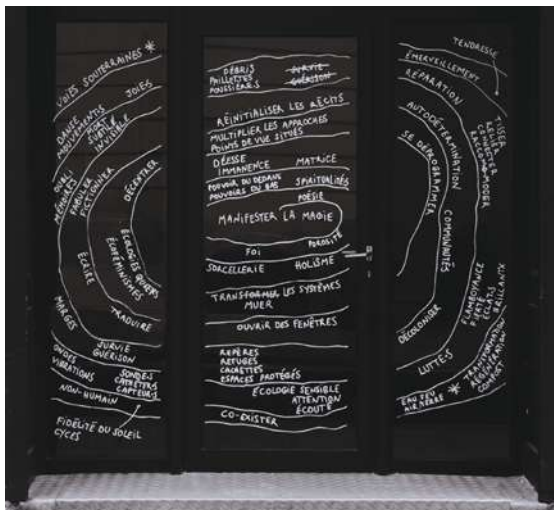 VOIES SOUTERRAINES *
DANSE
MOUVEMENTS
MORT
SUBTIL
INVISIBLE
JOIES
OUBLI
MÉMOIRES
FABULER
FICTIONNER
DÉCENTRER
ÉCRIRE
ÉCOLOGIES QUEERS
ÉCOFÉMINISMES
TRADUIRE
MARGES
SURVIE
GUÉRISON
ONDES
VIBRATIONS
SONDES
CATHÉTERS
CAPTEURS
NON-HUMAIN
FIDÉLITÉ DU SOLEIL
CYCES
DÉBRIS
PAILLETTES
POUSSIÈRES
SURVIE
GUÉRISON
RÉINITIALISER LES RÉCITS
MULTIPLIER LES APPROCHES
POINTS DE VUE SITUÉS
DÉESSE
IMMANENCE
MATRICE
POUVOIR DU DEDANS
POUVOIRS DU BAS
SPIRITUALITÉS
POÉSIE
MANIFESTER LA MAGIE
POROSITÉ
FOI
SORCELLERIE
HOLISME
TRANSFORMER LES SYSTÈMES
MUER
OUVRIR DES FENÊTRES
REPÈRES
REFUGES
CACHETTES
ESPACES PROTÉGÉS
ÉCOLOGIE SENSIBLE
ATTENTION
ÉCOUTE
CO-EXISTER
TENDRESSE
ÉMERVEILLEMENT
RÉPARATION
TISSER
RELIER
CONNECTER
RACCOMMODER
AUTODÉTERMINATION
SE DÉPROGRAMMER
COMMUNAUTÉS
DÉCOLONISER
LUTTES
FLAMBOYANCE
FIERTÉ
ÉCLATS
BRILLANTX
TRANSFORMATION
RÉGÉNÉRATION
COMPOST
EAU FEU *
AIR TERRE